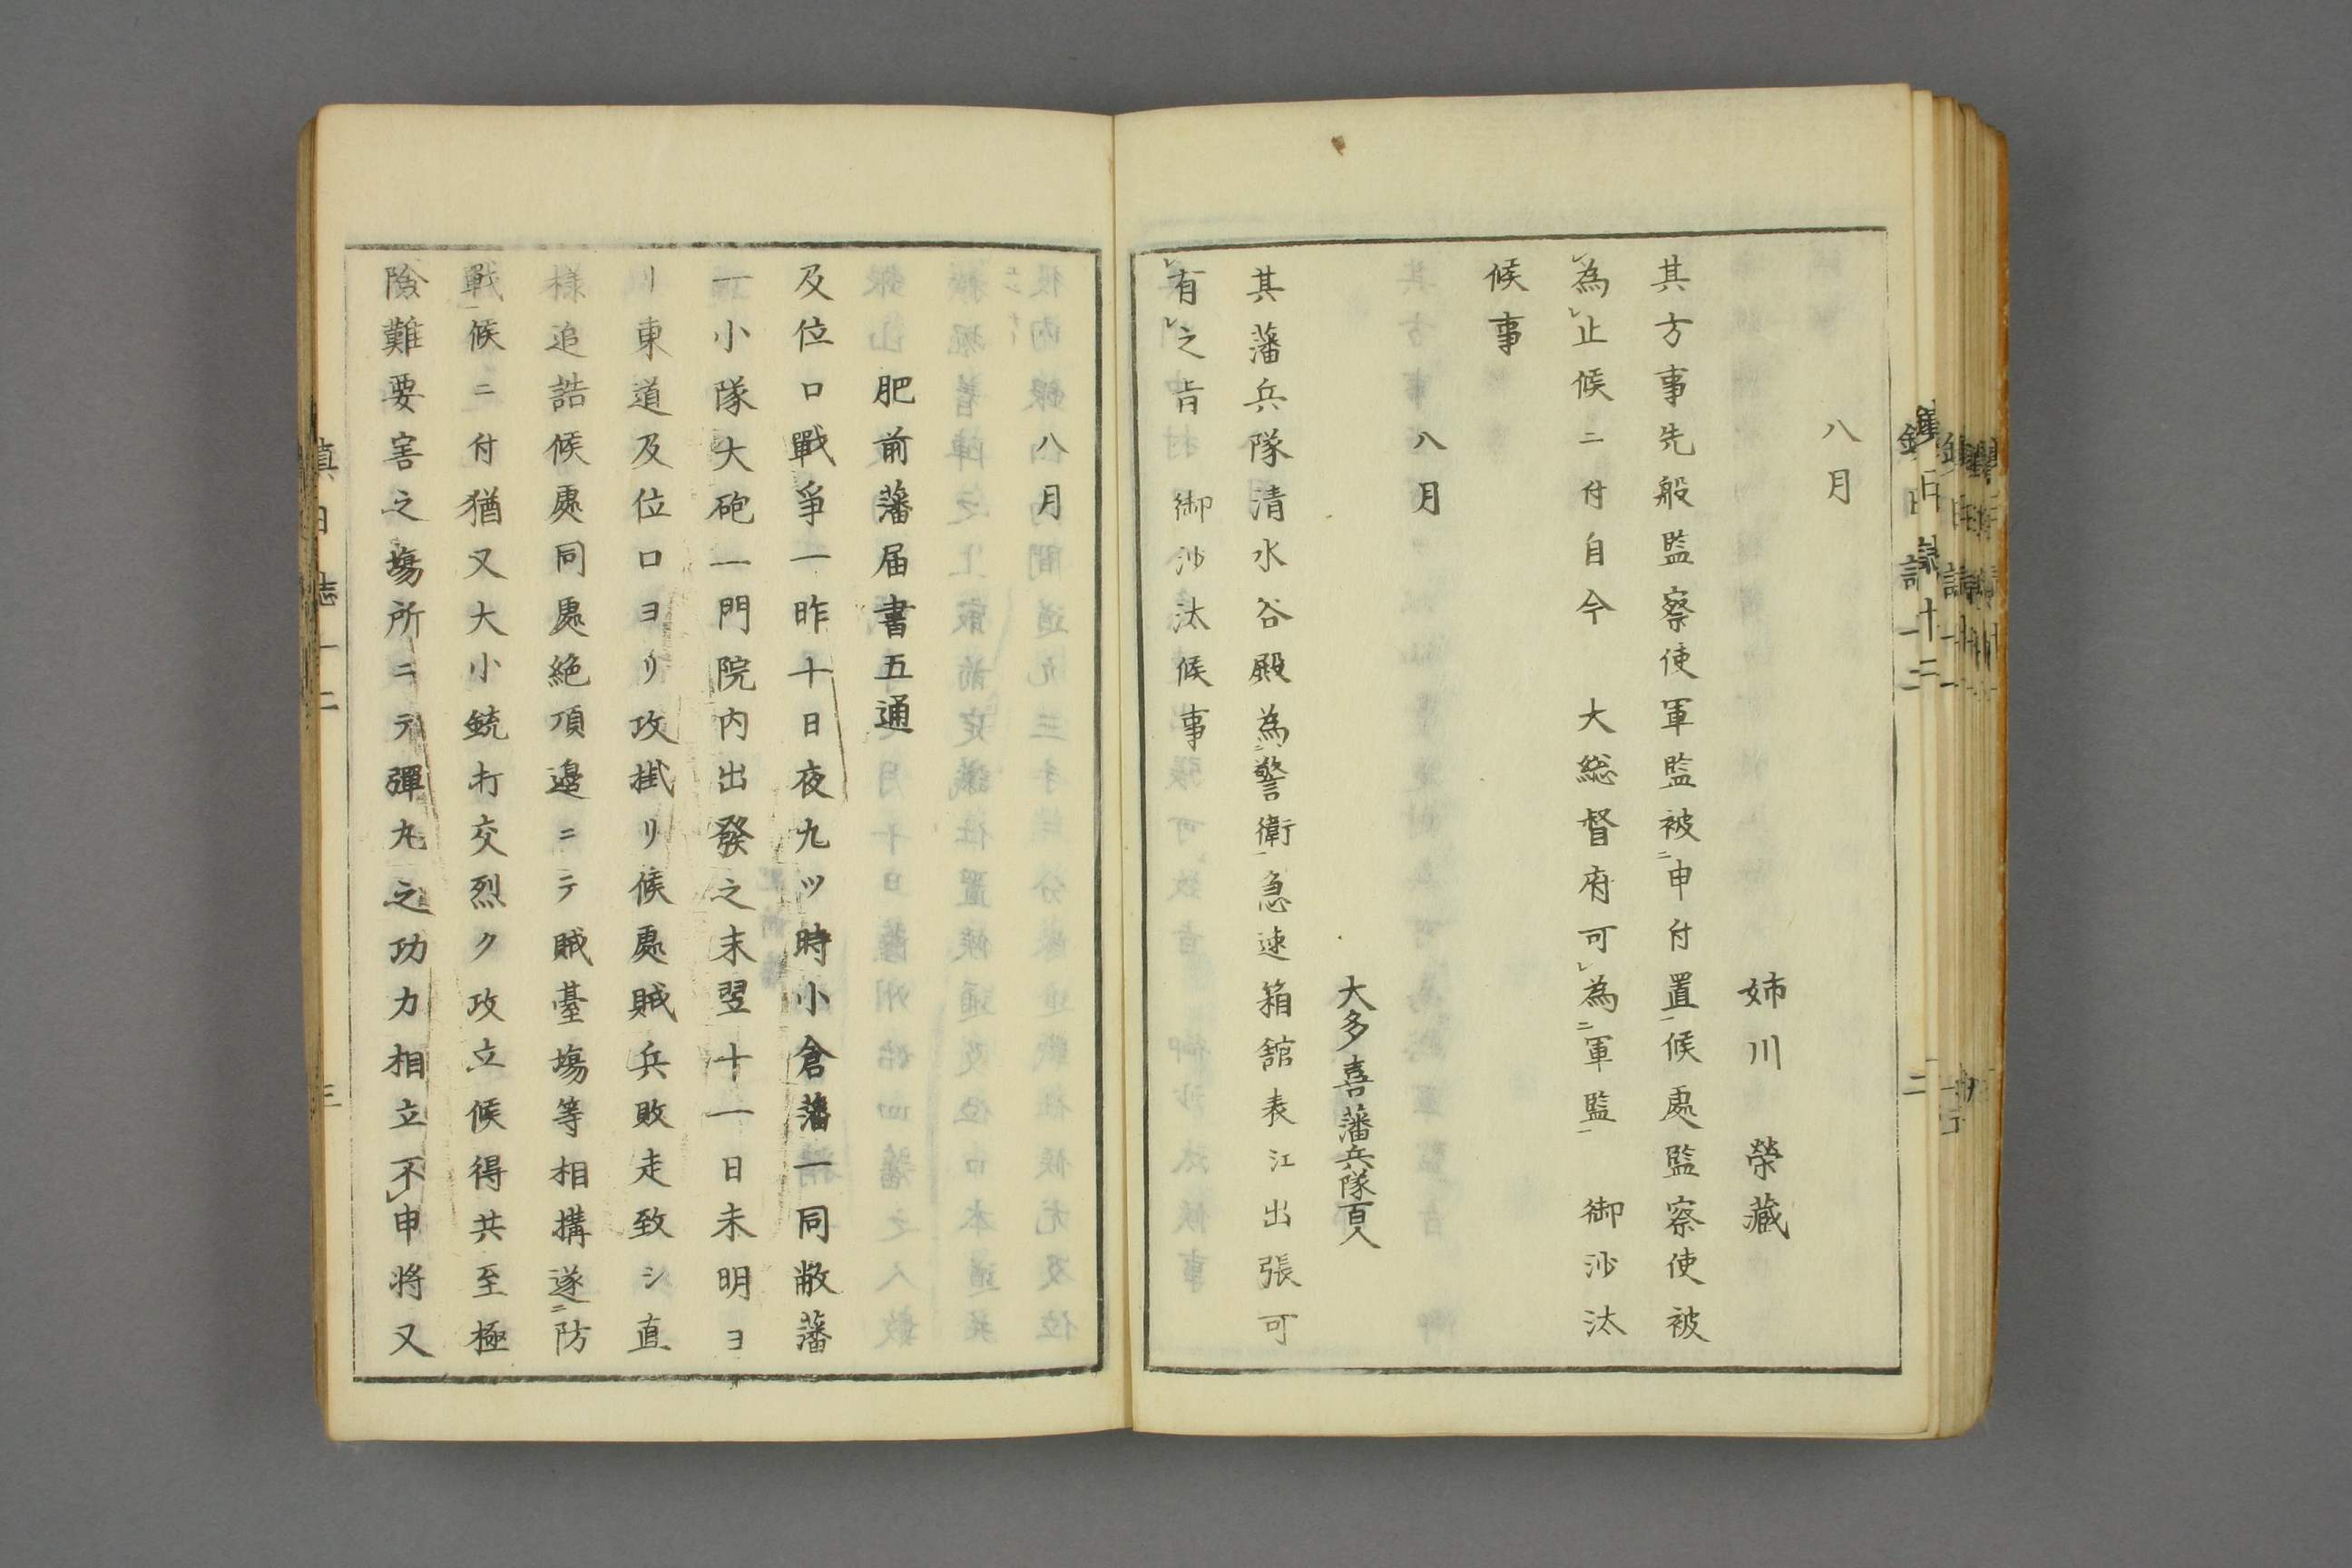 八月
姉川榮藏
其方事先般監察使軍監被ニ申付置一候處監察使被
レ為レ止候ニ付自今　大総督府可レ為ニ軍監一　御沙汰
候事
八月
大多喜藩兵隊百人
其藩兵隊清水谷殿為ニ警衛一急速箱舘表江出張可
レ有レ之旨　御沙汰候事
八月
肥前藩届書五通
及位口戰爭一昨十日夜九ツ時小倉藩一同敝藩
一小隊大砲一門院内出發之末翌十一日未明ヨ
リ東道及位口ヨリ攻掛リ候處賊兵敗走致シ直
様追詰候處同處絶頂邊ニテ賊臺塲等相搆遂ニ防
戰一候ニ付猶又大小銃打交烈ク攻立候得共至極
險難要害之塲所ニテ彈丸之功力相立不レ申将又
鎮日誌十二
二
三